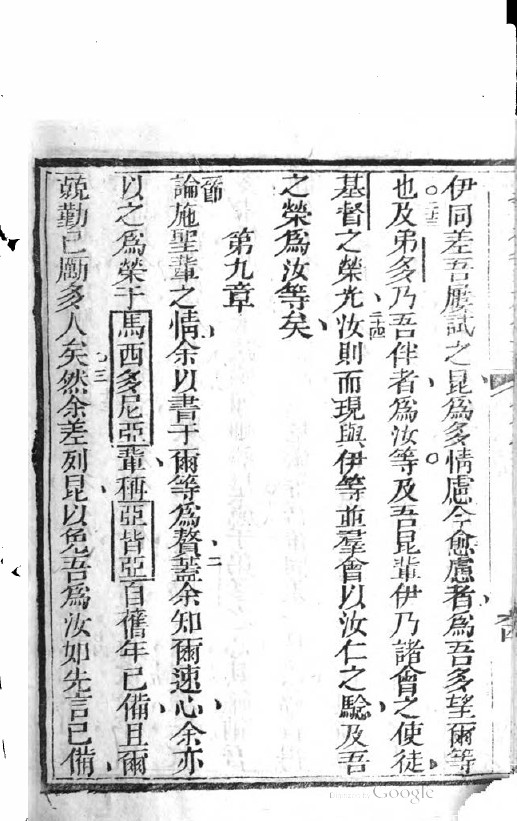 伊同差吾屢試之昆爲多情慮今愈慮者爲吾多望爾等
也二三及弟多乃吾伴者爲汝等及吾昆輩伊乃諸會之使徒
基督之榮光二四汝則而現與伊等並羣會以汝仁之驗及吾
之榮爲汝等矣
第九章
節論施聖輩之情余以書于爾等爲贅二蓋余知爾速心余亦
以之爲榮于馬西多尼亞輩稱亞皆亞自舊年已備且爾
兢勤已勵多人矣三然余差列昆以免吾爲汝如先言已備
Google